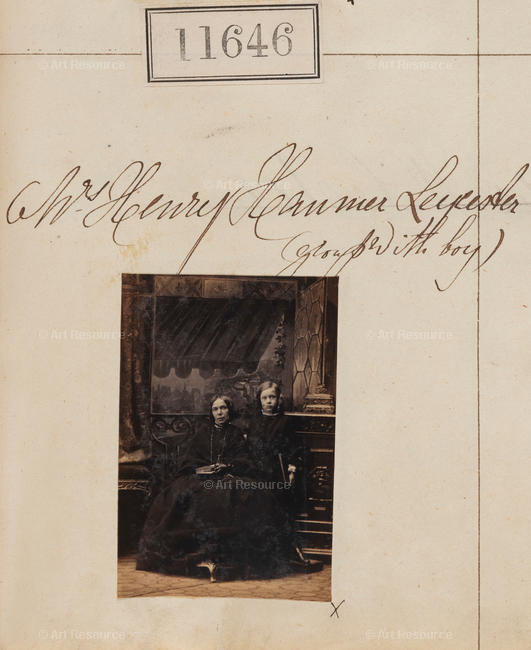 11646
Mrs Henry Hanmer Leycester
(group with boy)
x
© Art Resource
© Art Resource
© Art Resource
© Art Resource
© Art Resource
© Art Resource
© Art Resource